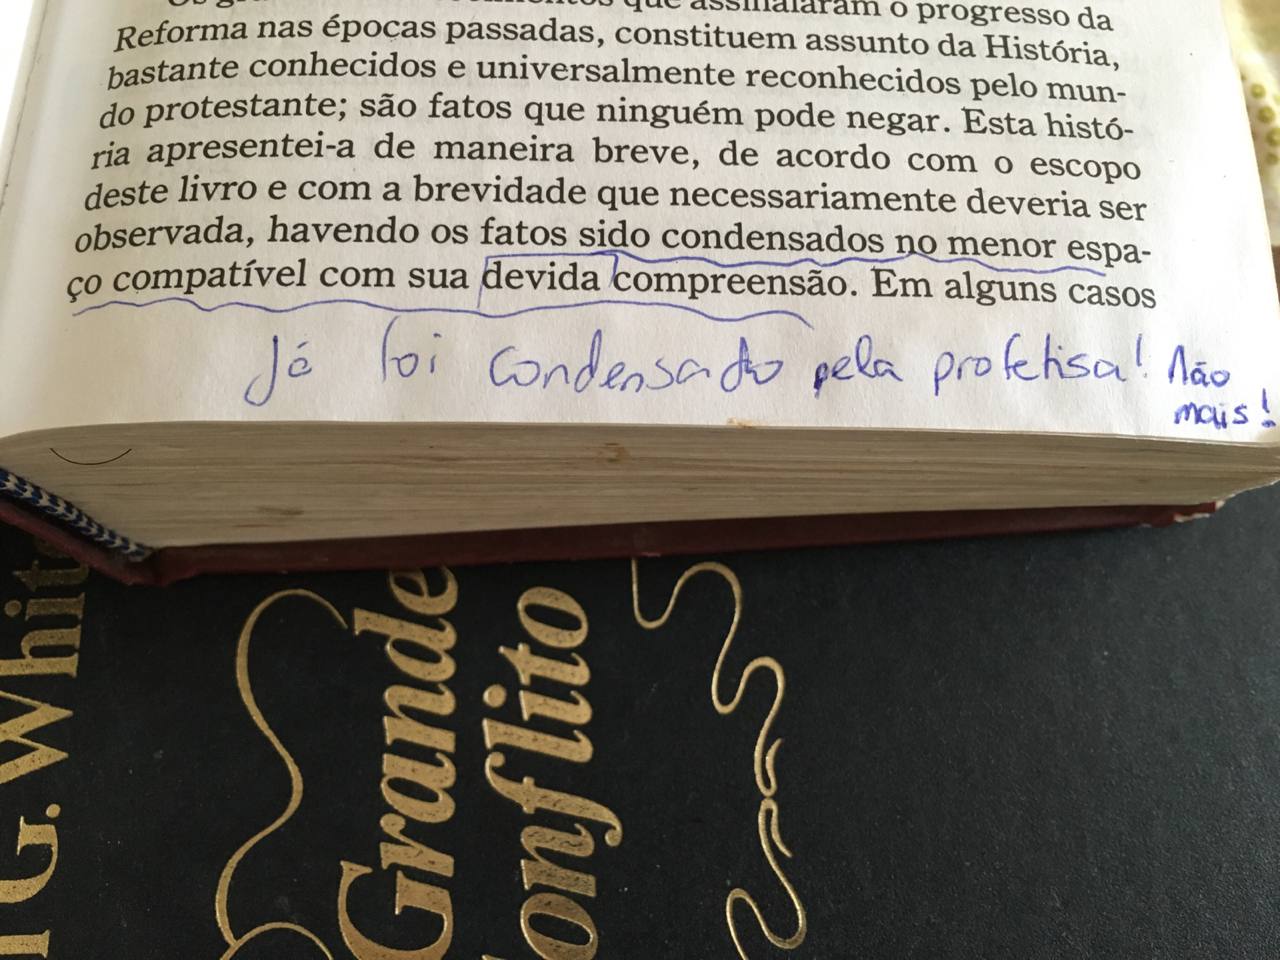 que assinalaram o progresso da
Reforma nas épocas passadas, constituem assunto da História,
bastante conhecidos e universalmente reconhecidos pelo mun-
do protestante; são fatos que ninguém pode negar. Esta histó-
ria apresentei-a de maneira breve, de acordo com o escopo
deste livro e com a brevidade que necessariamente deveria ser
observada, havendo os fatos sido condensados no menor espa-
ço compatível com sua devida compreensão. Em alguns casos
Já foi condensado pela profetisa! Não
mais!
G. White
Grande
onflito